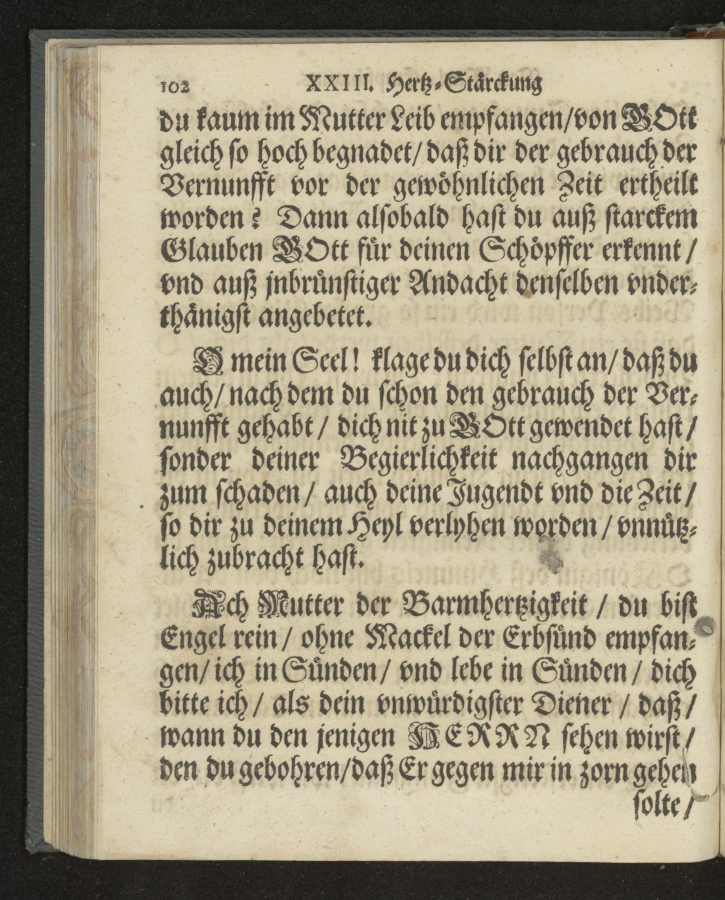 102 XXIII. Hertz-Stärckung
du kaum im Mutter Leib empfangen/von GOtt
gleich so hoch begnadet/ daß dir der gebrauch der
Vernunfft vor der gewöhnlichen Zeit ertheilt
worden? Dann alsobald hast du auß starckem
Glauben GOtt für deinen Schöpffer erkennt/
vnd auß jnbrünstiger Andacht denselben vnder-
thänigst angebetet.
O mein Seel! klage du dich selbst an/ daß du
auch/ nach dem du schon den gebrauch der Ver-
nunfft gehabt/ dich nit zu GOtt gewendet hast/
sonder deiner Begierlichkeit nachgangen dir
zum schaden/ auch deine Jugendt vnd die Zeit/
so dir zu deinem Heyl verlyhen worden/ vnnütz-
lich zubracht hast.
Ach Mutter der Barmhertzigkeit / du bist
Engel rein/ ohne Mackel der Erbsünd empfan-
gen/ ich in Sünden/ vnd lebe in Sünden/ dich
bitte ich/ als dein vnwürdigster Diener / daß/
wann du den jenigen HERRN sehen wirst/
den du gebohren/daß Er gegen mir in zorn gehen
solte/